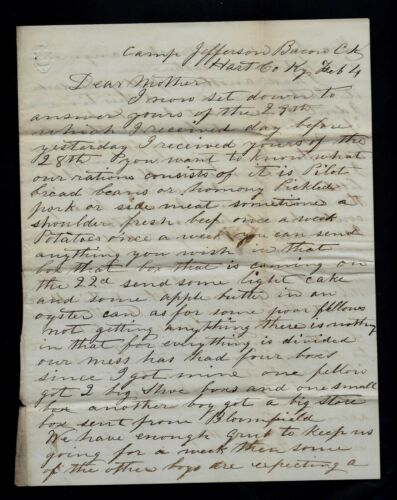 Camp Jefferson Bacon Ck
Hart Co Ky Feb 4
Dear Mother
I now set down to
answer yours of the 29th
which I received day before
yesterday I received yours of the
28th you want to know what
our rations consists of it is Pilot
bread beans or homony Pickled
pork or side meat sometime a
shoulder fresh beef once a week
Potatoes once a week you can send
anything you wish in that
box that box that is coming on
the 22d send some light cake
and some apple butter in an
oyster can as for some poor fellows
not getting anything there is nothing
in that for everything is divided
our mess has had four boxes
since I got mine one fellow
got 2 big Shoe boxes and one small
box another boy got a big store
box sent from Bloomfield
We have enough grub to keep us
going for a week then some
of the other boys are expecting a